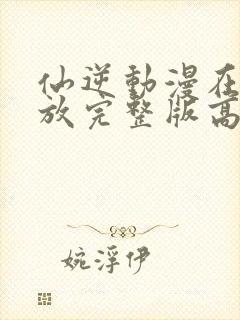 仙逆動漫在
放完整版高
婉浮伊